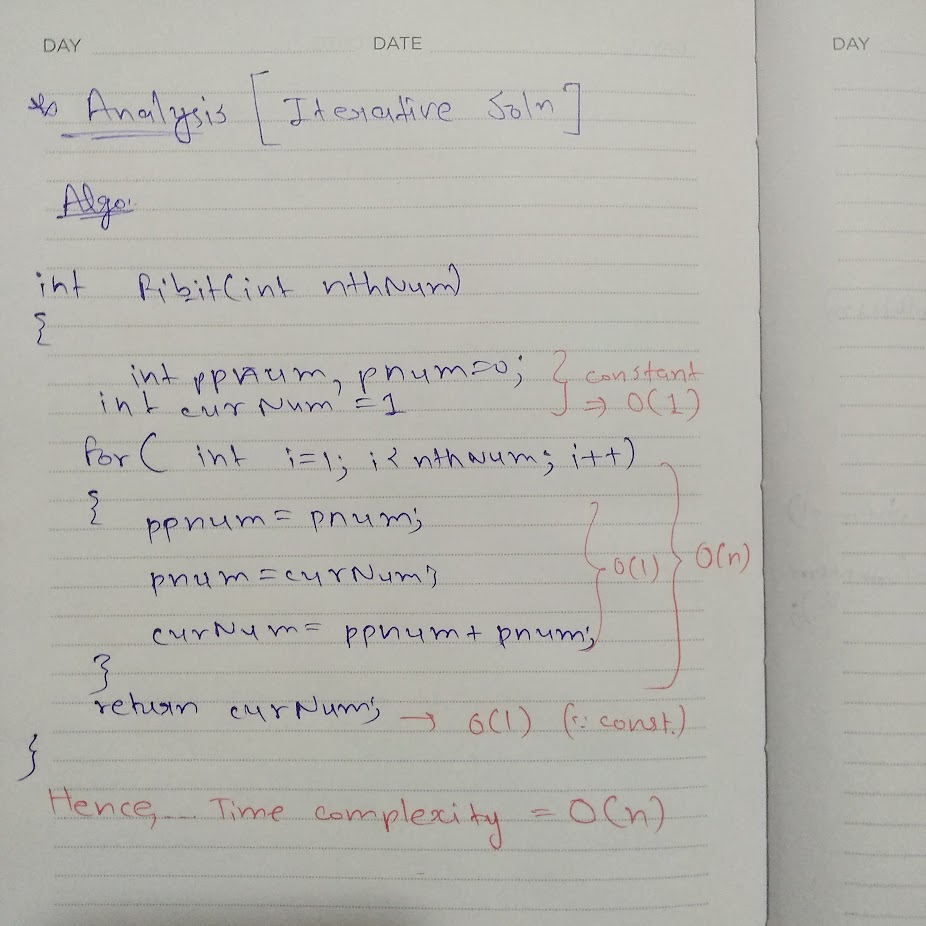 DAY DATE DAY
Analysis [Iterative Soln]
Algo:
int Fibit(int nthNum)
{
int ppnum, pnum=0; } constant
int curNum = 1 ⇒ O(1)
for( int i=1; i< nthNum; i++)
{ ppnum = pnum;
pnum = curNum; } O(1) } O(n)
curNum = ppnum + pnum;
}
return curNum; → O(1) (∵ const.)
}
Hence, Time complexity = O(n)